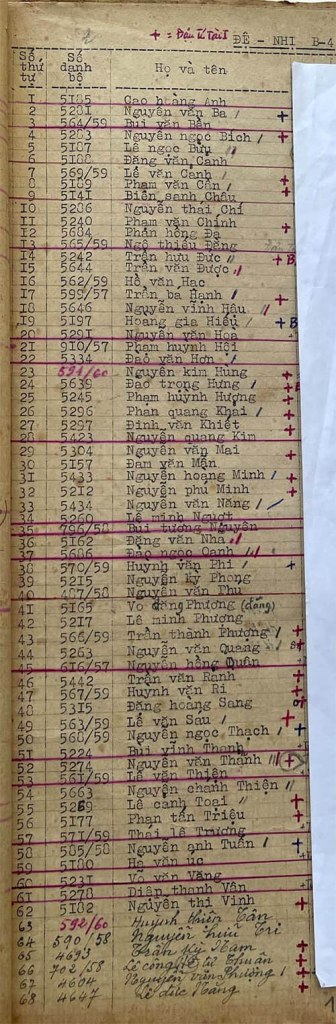 + = Đậu Tú Tài I
ĐỆ - NHI B-4
Số thứ tự Số danh bộ Họ và tên
1 5185 Cao hoàng Anh
2 5281 Nguyễn văn Ba / +
3 564/59 Bùi văn Bền
4 5283 Nguyễn ngọc Bich / +
5 5187 Lê ngọc Bửu //
6 5188 Đặng văn Canh
7 569/59 Lê văn Cảnh / +
8 5189 Phạm văn Cẩn / +
9 5141 Biện sanh Châu +
10 5286 Nguyễn thái Chí
11 5240 Phạm văn Chính +
12 5684 Phan hồng Đa
13 565/59 Ngô thiếu Đẳng
14 5242 Trần hữu Đức // + B
15 5644 Trần văn Được //
16 562/59 Hồ văn Hạc
17 599/57 Trần bá Hạnh / +
18 5646 Nguyễn vĩnh Hậu //
19 5197 Hoàng gia Hiếu / + B
20 5291 Nguyễn văn Hoa
21 910/57 Phạm huỳnh Hội
22 5334 Đào văn Hơn /
23 591/60 Nguyễn kim Hùng +
24 5639 Đào trọng Hưng / +
25 5245 Phạm huỳnh Hương +
26 5296 Phan quang Khải / +
27 5297 Đinh văn Khiết +
28 5423 Nguyễn quang Kim
29 5304 Nguyễn văn Mai +
30 5157 Đàm văn Mận
31 5433 Nguyễn hoàng Minh / +
32 5212 Nguyễn phú Minh +
33 5434 Nguyễn văn Năng / /
34 5260 Lê minh
35 796/58 Bùi tường Nguyên
36 5162 Đặng văn Nha //
37 5686 Đào ngọc Oanh //
38 570/59 Huỳnh văn Phi / +
39 5215 Nguyễn kỳ Phong
40 487/58 Nguyễn văn Thu
41 5165 Võ đăng Phương (đăng)
42 5217 Lê minh Phương
43 566/59 Trần thanh Phượng / +
44 5263 Nguyễn văn Quang
45 616/57 Nguyễn hồng Quân +
46 5442 Trần văn Ranh +
47 567/59 Huỳnh văn Ri +
48 5315 Đặng hoàng Sang
49 563/59 Lê văn Sau / +
50 568/59 Nguyễn ngọc Thạch / +
51 5224 Bùi vinh Thanh
52 5274 Nguyễn văn Thành //
53 561/59 Lê văn Thiện
54 5663 Nguyễn chánh Thiện //
55 5269 Lê cảnh Toại // +
56 5177 Phan tấn Triệu +
57 571/59 Thái lê Trương
58 585/58 Nguyễn anh Tuấn / +
59 5180 Hà văn Úc
60 5231 Võ văn Vàng
61 5278 Diệp thanh Vân +
62 5182 Nguyễn thị Vinh +
63 592/60 Huỳnh thiện Tân
64 590/58 Nguyễn hữu Trí
65 4693 Trần Kỳ Nam +
66 702/58 Lê công Thuần +
67 4604 Nguyễn văn Phượng / +
68 4647 Lê đức Năng +